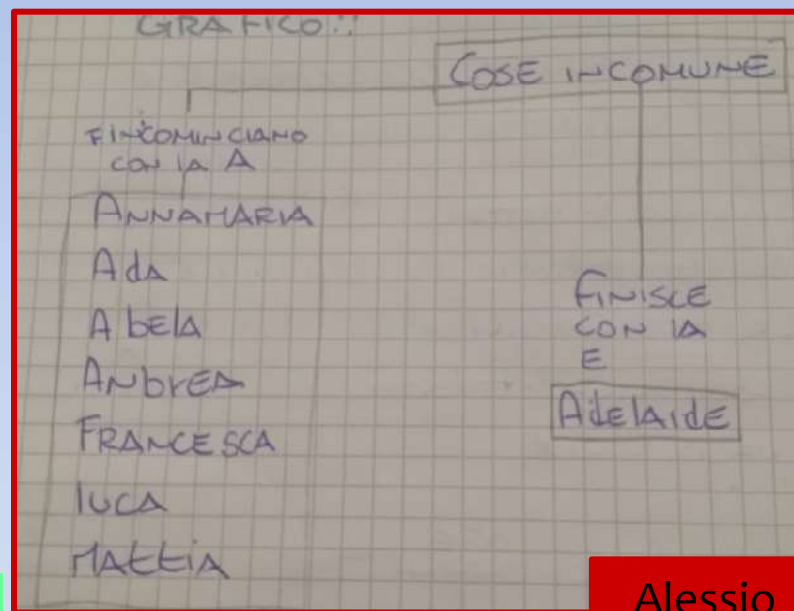 GRAFICO::
COSE INCOMUNE
FINCOMINCIANO
CON lA A
ANNAMARIA
AdA
AbelA
ANbrEA
FRANCESCA
lUCA
MAttiA
FINISCE
CON lA
E
AdElAIdE
Alessio